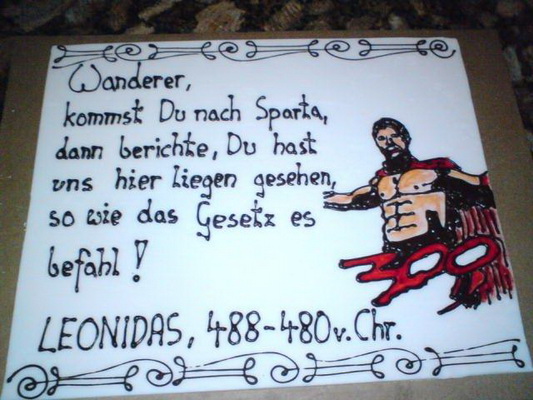 Wanderer,
kommst Du nach Sparta,
dann berichte, Du hast
uns hier liegen gesehen,
so wie das Gesetz es
befahl!
300
LEONIDAS, 488-480 v. Chr.